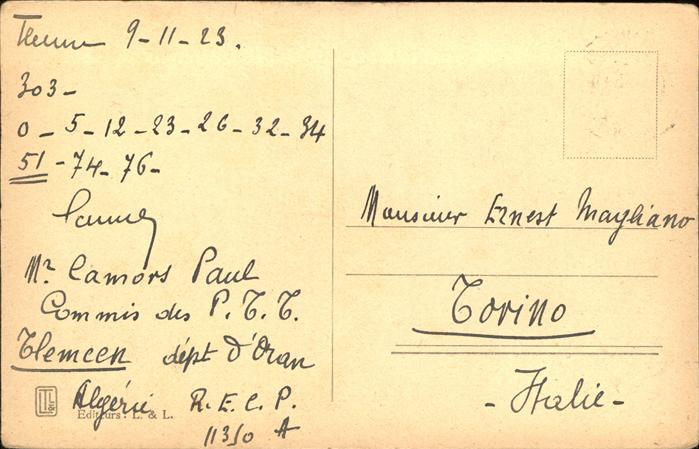 9-11-23.
303-
0-5-12-23-26-32-34
51-74-76-
Mr Camors Paul
Commis des P.T.T.
Tlemcen dépt d'Oran
Algérie R.E.C.P.
Editeurs: L. & L.
11350 A
Monsieur Ernest Magliano
Torino
-Italie-